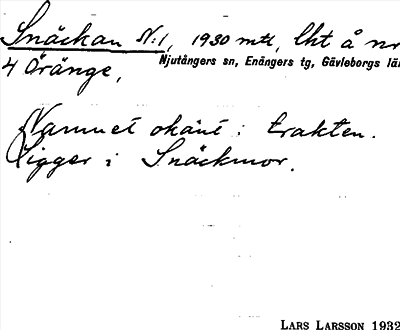 Snäckan N:1, 1930 mtl, lht å nr
Njutångers sn, Enångers tg, Gävleborgs län
4 Öränge,
Namnet okänt i trakten.
Ligger i Snäckmor.
LARS LARSSON 1932